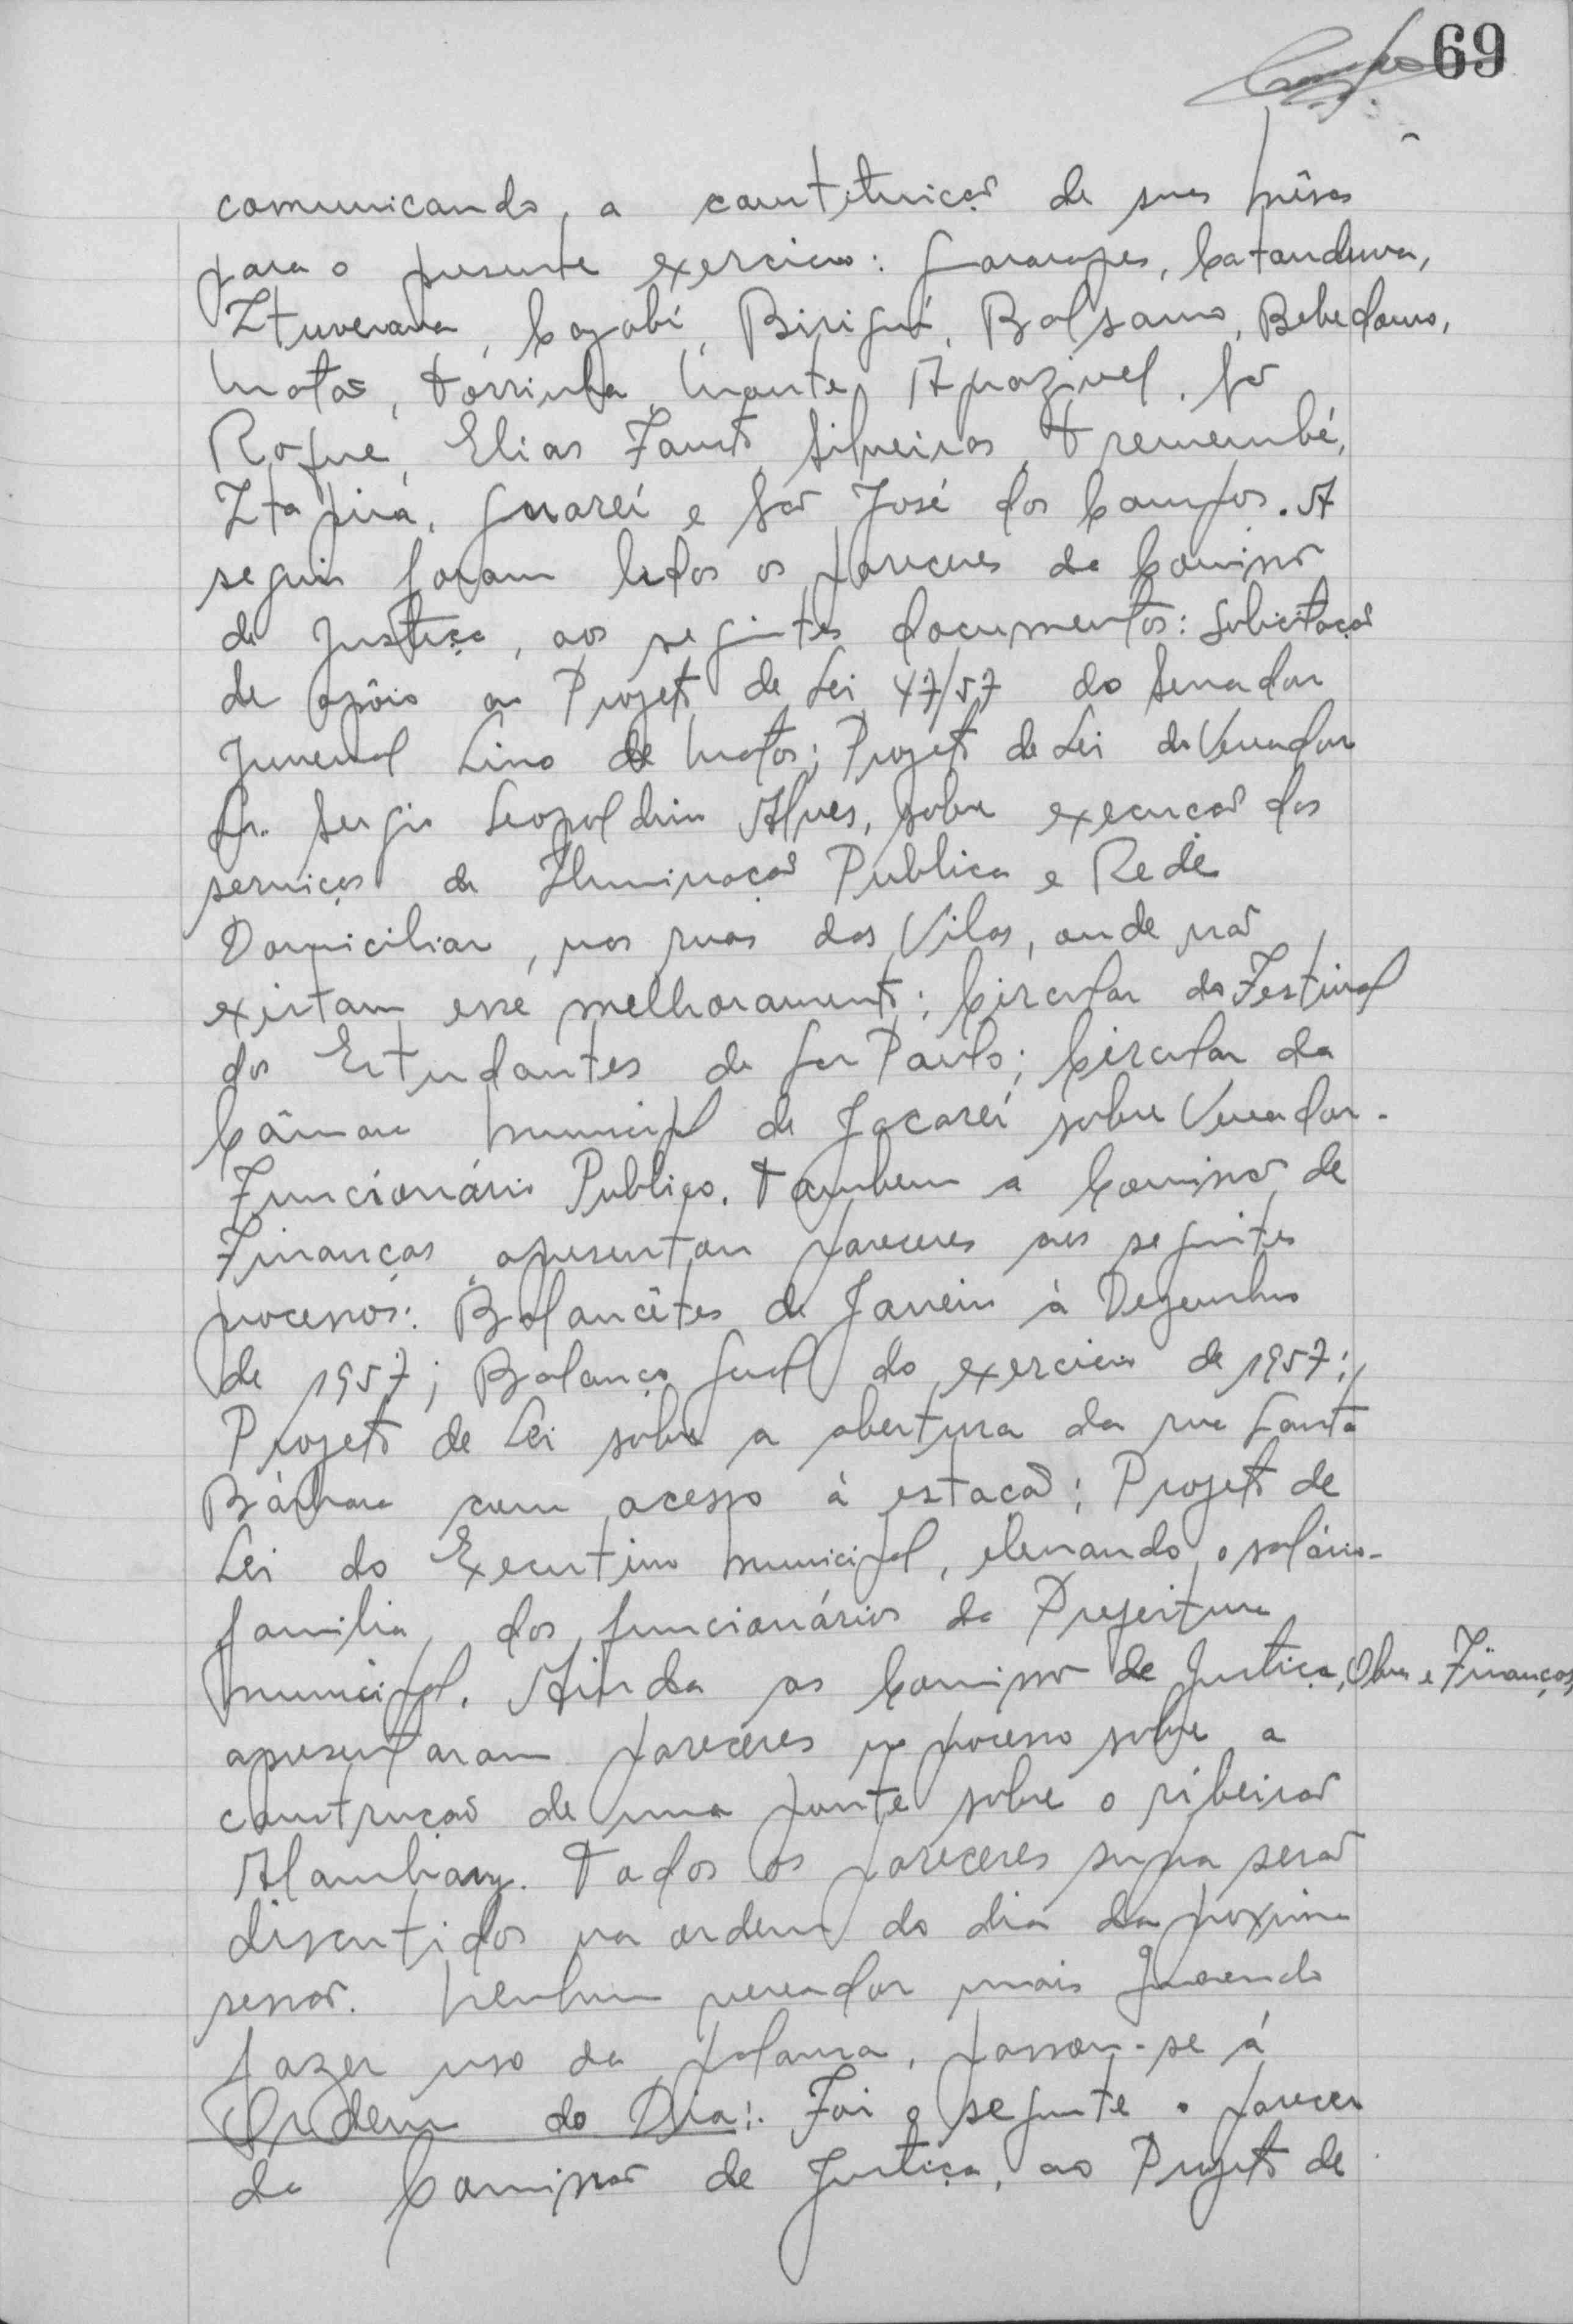 69
comunicando, a constituição de suas mêsas
para o presente exercicio: Guararapes, Catanduva,
Ituverava, Cajobí, Biriguí, Balsamo, Bebedouro,
Matão, Torrinha, Monte Aprazivel, São
Roque, Elias Fausto, Silveiras, Tremembé,
Itapirá, Guareí e São José dos Campos. A
seguir foram lidos os pareceres da Comissão
de Justiça, aos seguintes documentos: Solicitação
de apôio ao Projeto de Lei 47/57 do Senador
Juvenal Lino de Matos; Projeto de Lei do Vereador
Dr. Sergio Leopoldino Alves, sobre execução dos
serviços de Iluminação Publica e Rede
Domiciliar, nas ruas das Vilas, onde não
existam esse melhoramento; Circular do Festival
dos Estudantes de São Paulo; Circular da
Câmara Municipal de Jacareí sobre Vereador-
Funcionário Publico. Tambem a Comissão de
Finanças apresentou pareceres aos seguintes
processos: Balancêtes de Janeiro à Dezembro
de 1957; Balanço Geral do exercicio de 1957;
Projeto de Lei sobre a abertura da rua Santa
Bárbara com acesso á estação; Projeto de
Lei do Executivo Municipal, elevando o salário-
familia, dos funcionários da Prefeitura
Municipal. Ainda as Comissão de Justiça, Obras e Finanças,
apresentaram pareceres no processo sobre a
construção de uma ponte sobre o ribeirão
Alambary. Todos os pareceres supra serão
discutidos na ordem do dia da proxima
sessão. Nenhum vereador mais querendo
fazer uso da palavra, passou-se á
Ordem do Dia:. Foi o seguinte o parecer
da Comissão de Justiça, ao Projeto de